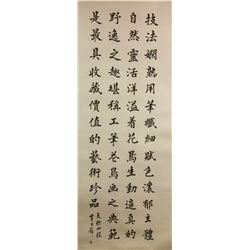 技法嫻熟用筆纖細賦色濃郁主體
自然靈活洋溢着花鳥生動逼真的
野逸之趣堪稱工筆花鳥畫之典範
是最具收藏價值的藝術珍品